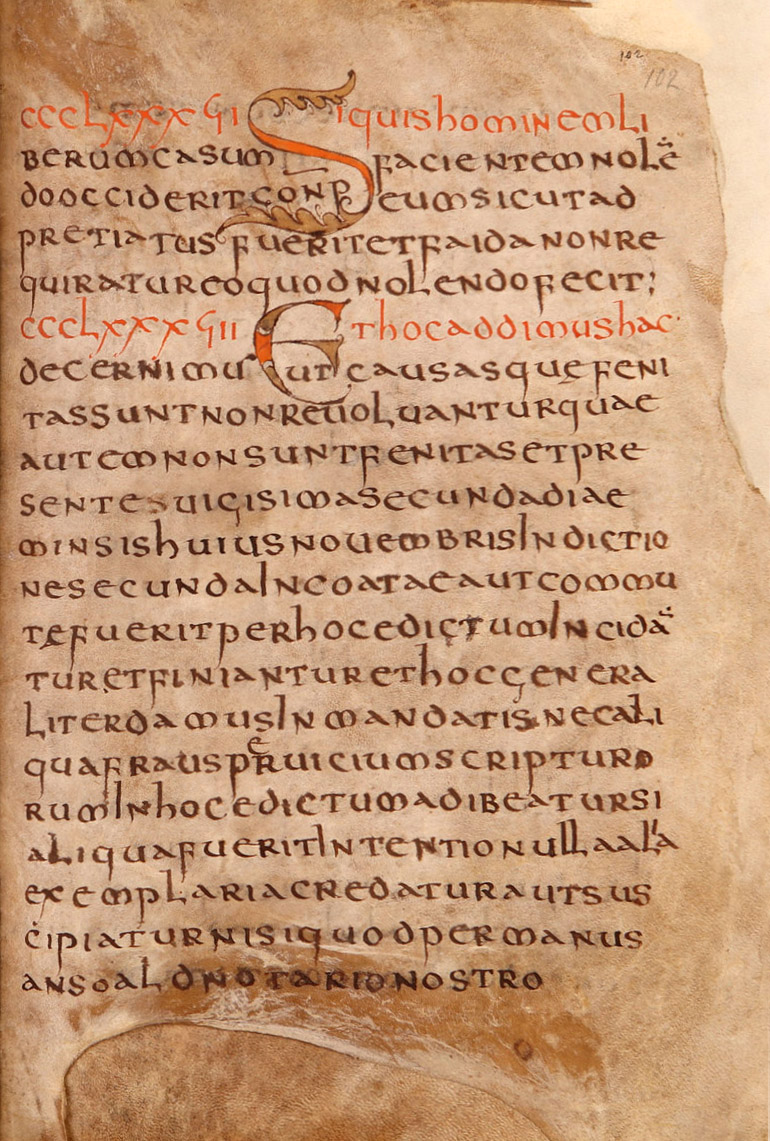 102
102
CCCLXXXVI Siquishominemli
berumcasum facientemnolē
dooccideritconp eumsicutad
pretiatusfueritetfaidanonre
quiratureoquodnolendofecit;
CCCLXXXVII Ethocaddimushac
decernimus utcausasquefeni
tassuntnonreuoluanturquae
autemnonsuntfenitasetpre
sentesuigisimasecundadiae
minsishuiusnouembrisIndictio
nesecundaIncoataeautcommu
tefueritperhocedictumIncidā
turetfinianturethocgenera
literdamusInmandatisnecali
quafrausperuiciumscripturo
rumInhocedictumadibeatursi
aliquafueritIntentionullaalia
exemplariacredaturautsus
cipiaturnisiquodpermanus
ansoaldnotarionostro